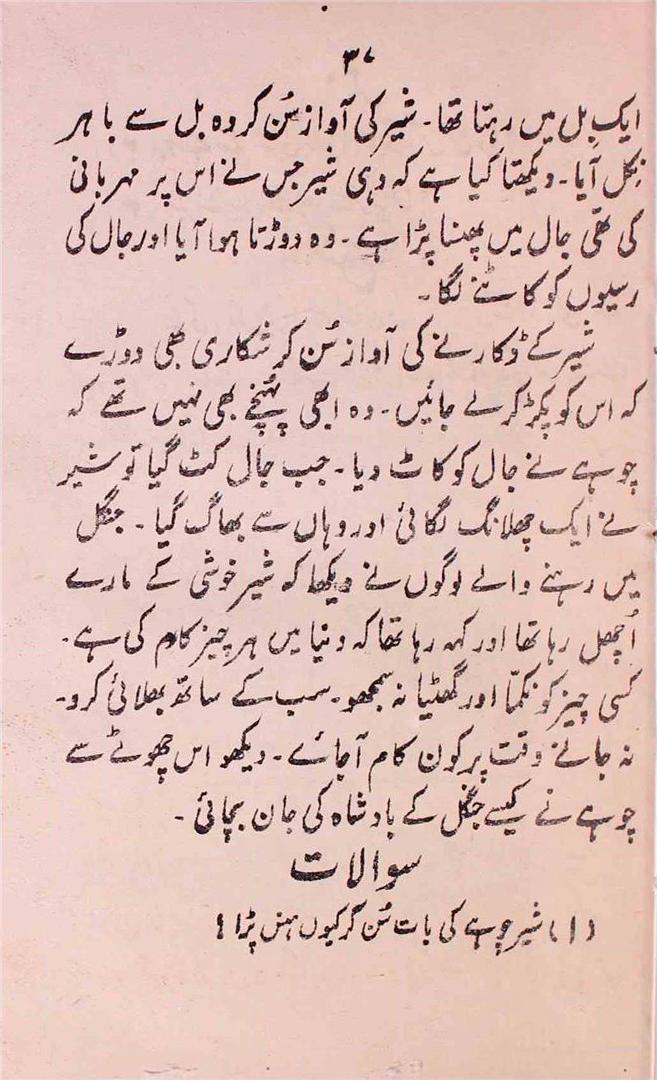 ۳۷
ایک بِل میں رہتا تھا۔ شیر کی آواز سُن کر وہ بل سے باہر
نِکل آیا۔ دیکھتا کیا ہے کہ وہی شیر جس نے اس پر مہربانی
کی تھی جال میں پھنسا پڑا ہے۔ وہ دوڑتا ہوا آیا اور جال کی
رسیوں کو کاٹنے لگا۔
شیر کے ڈکارنے کی آواز سُن کر شکاری بھی دوڑے
کہ اس کو پکڑ کر لے جائیں۔ وہ ابھی پہُنچے بھی نہیں تھے کہ
چوہے نے جال کو کاٹ دیا۔ جب جال کٹ گیا تو شیر
نے ایک چھلانگ لگائی اور وہاں سے بھاگ گیا۔ جنگل
میں رہنے والے لوگوں نے دیکھا کہ شیر خوشی کے مارے
اُچھل رہا تھا اور کہہ رہا تھا کہ دنیا میں ہر چیز کام کی ہے۔
کسی چیز کو نکمّا اور گھٹیا نہ سمجھو۔ سب کے ساتھ بھلائی کرو۔
نہ جانے وقت پر کون کام آجائے۔ دیکھو اس چھوٹے سے
چوہے نے کیسے جنگل کے بادشاہ کی جان بچائی۔
سوالات
(۱) شیر چوہے کی بات سُن کر کیوں ہنس پڑا؟